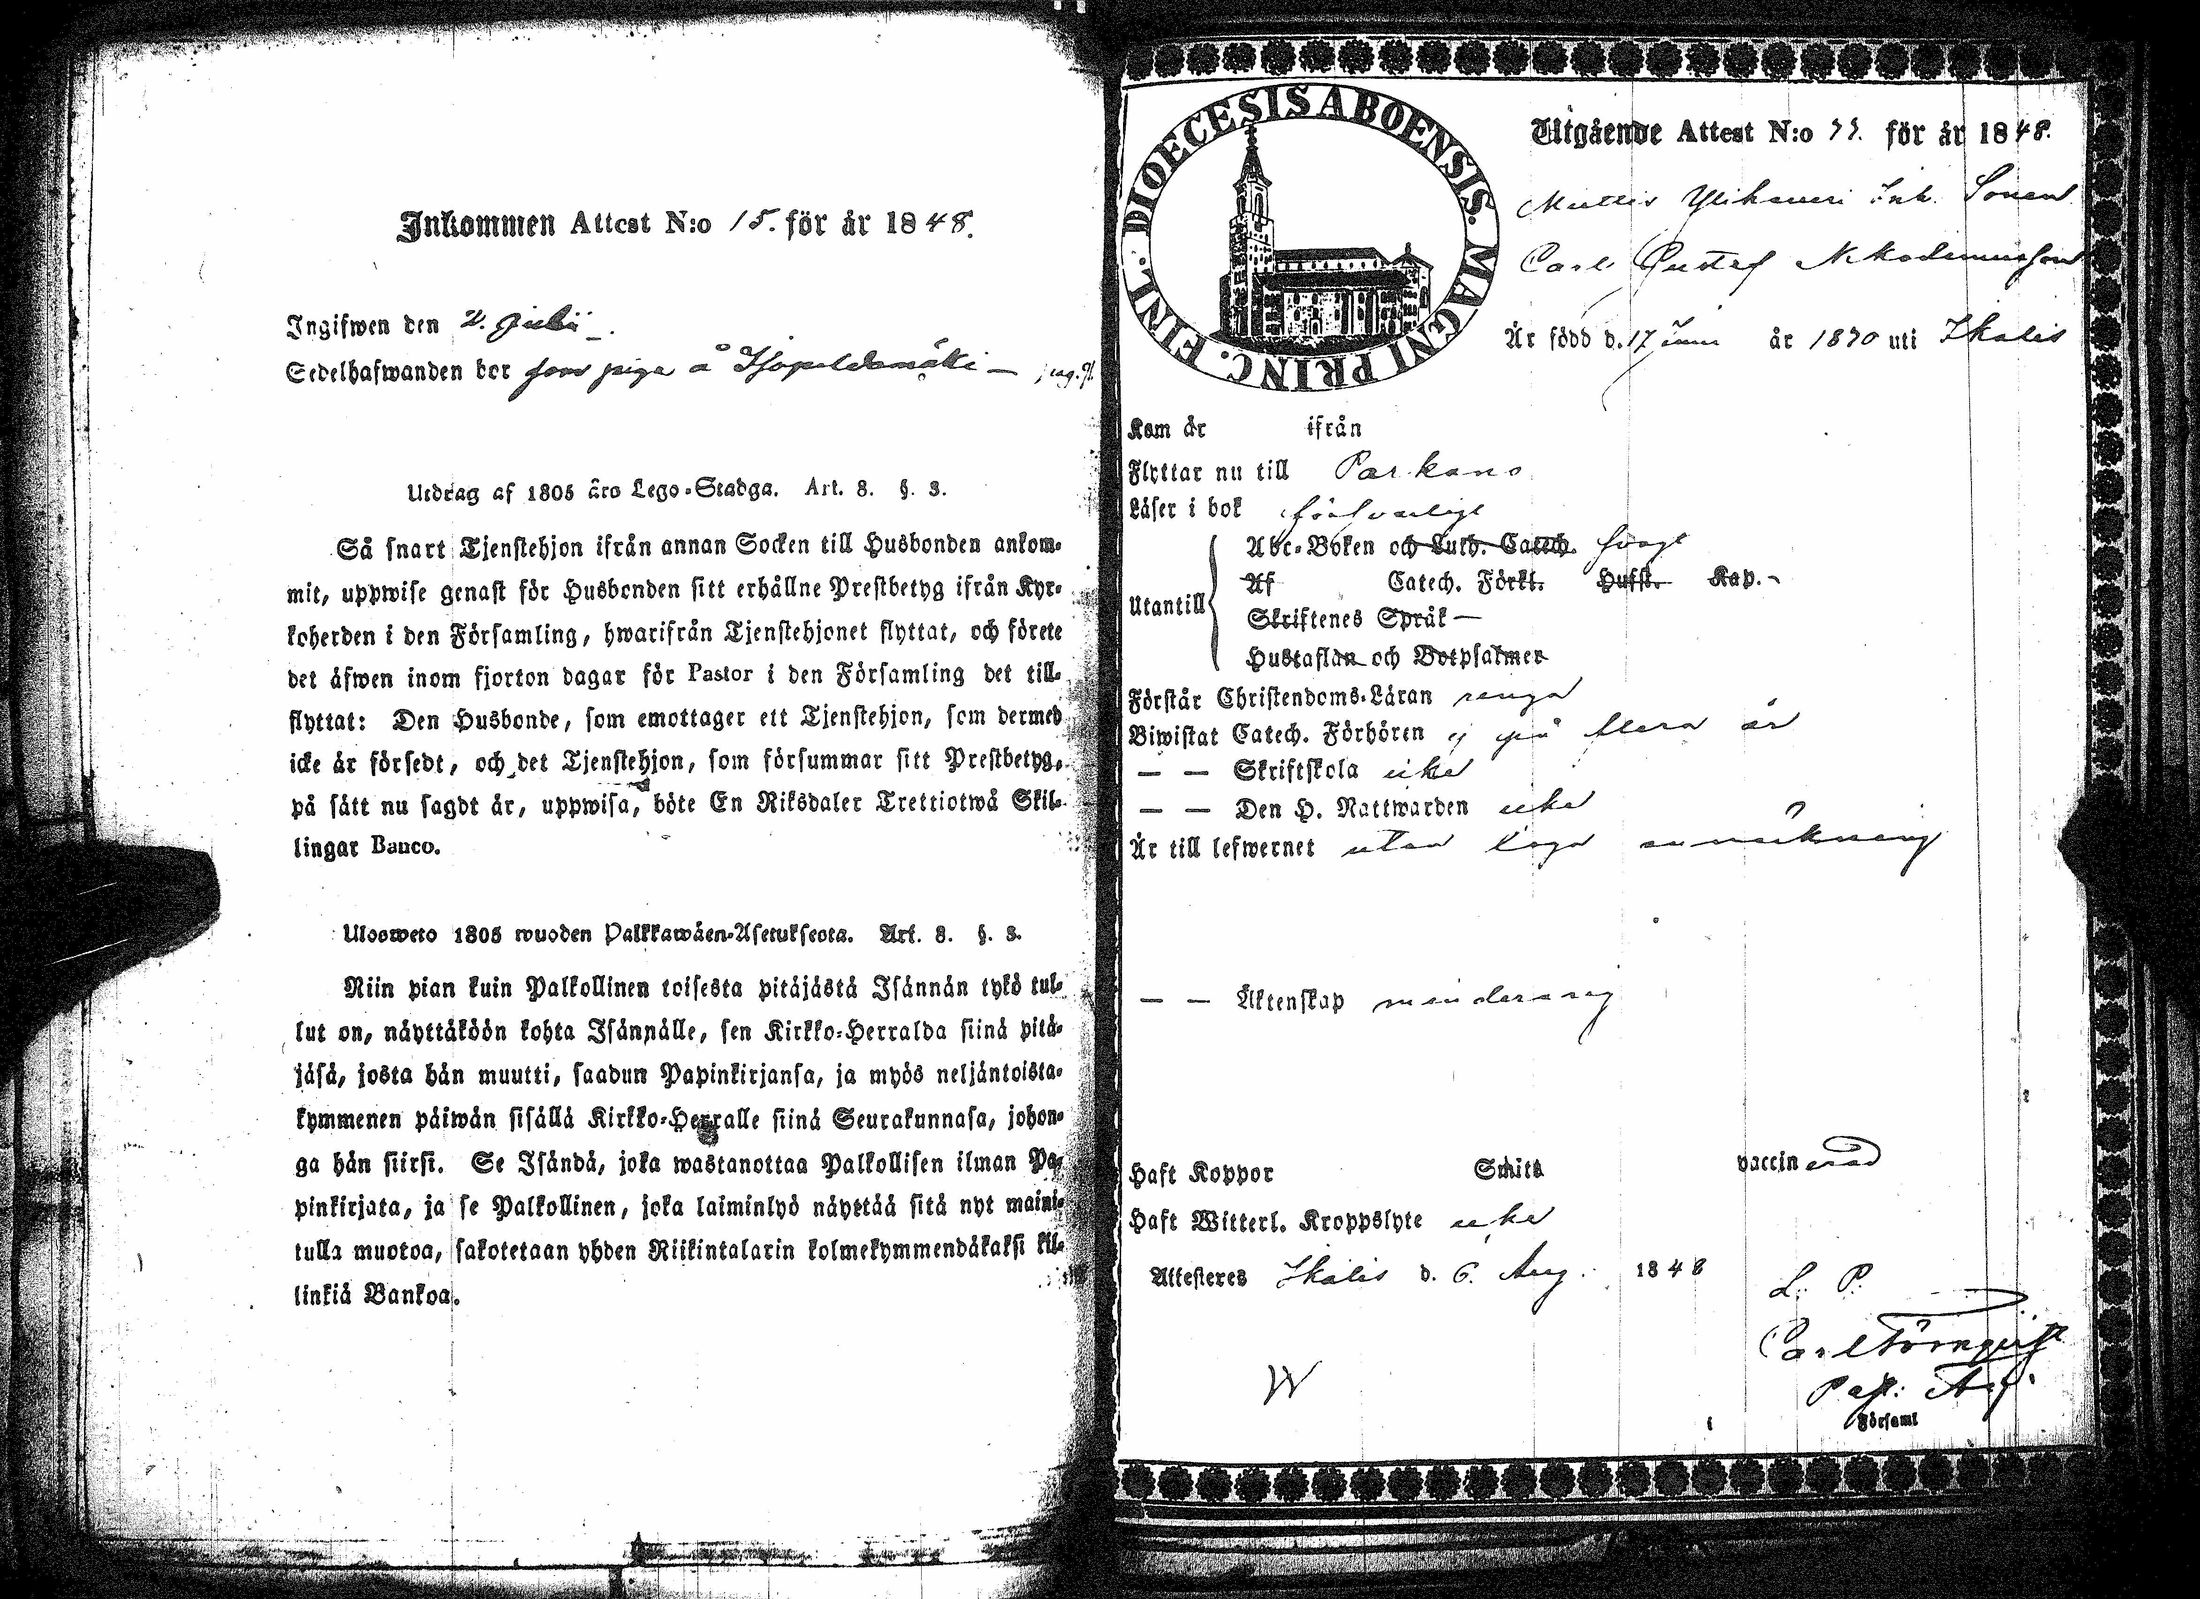 Inkommen Attest N:o 15. för år 1848.
Ingifwen den 2. Julii
Sedelhafwanden bor som piga å
Utdrag af 1805 års Lego-Stadga. Art. 8. §. 3.
Så snart Tjenstehjon ifrån annan Socken till Husbonden ankom-
mit, uppwise genast för Husbonden sitt erhållne Prestbetyg ifrån Kyr-
koherden i den Församling, hwarifrån Tjenstehjonet flyttat, och förete
det äfwen inom fjorton dagar för Pastor i den Församling det till-
flyttat: Den Husbonde, som emottager ett Tjenstehjon, som dermed
icke är försedt, och det Tjenstehjon, som försummar sitt Prestbetyg,
på sätt nu sagdt är, uppwisa, böte En Riksdaler Trettiotwå Skil-
lingar Banco.
Uloosweto 1805 wuoden Palkkawäen-Asetuksesta. Art. 8. §. 3.
Niin pian kuin Palkollinen toisesta pitäjästä Isännän tykö tul-
lut on, näyttäköön kohta Isännälle, sen Kirkko-Herralda siinä pitä-
jäsä, josta hän muutti, saadun Papinkirjansa, ja myös neljäntoista-
kymmenen päiwän sisällä Kirkko-Herralle siinä Seurakunnasa, johon-
ga hän siirsi. Se Isändä, joka wastanottaa Palkollisen ilman Pa-
pinkirjata, ja se Palkollinen, joka laiminlyö näyttää sitä nyt maini-
tulla muotoa, sakotetaan yhden Riikintalarin kolmekymmendäkaksi kil-
linkiä Bankoa.
DIOECESIS ABOENSIS. MAGNI PRINC. FINL.
Utgående Attest N:o 33. för år 1848.
Mattis Ylikaueri Inh. Sonen
Carl Gustaf Nikodemusson
Är född d. 17 Juni år 1830 uti Ikalis
Kom år ifrån
Flyttar nu till Parkano
Läser i bok försvarligt
Utantill
Abc-Boken och Luth. Catech. svagt
Af Catech. Förkl. Hufst. Kap.-
Skriftenes Språk —
Hustaflan och Botpsalmer
Förstår Christendoms-Läran ringa
Biwistat Catech. Förhören ej på flera år
— — Skriftskola icke
— — Den H. Nattwarden icke
Är till lefwernet utan laga anmärkning
— — Äktenskap minderårig
Haft Koppor Smitt vaccinerad
Haft Witterl. Kroppslyte icke
Attesteres Ikalis d. 6. Aug. 1848
L. P.
Carl Törnqvist
Past: Adj.
Församl
W